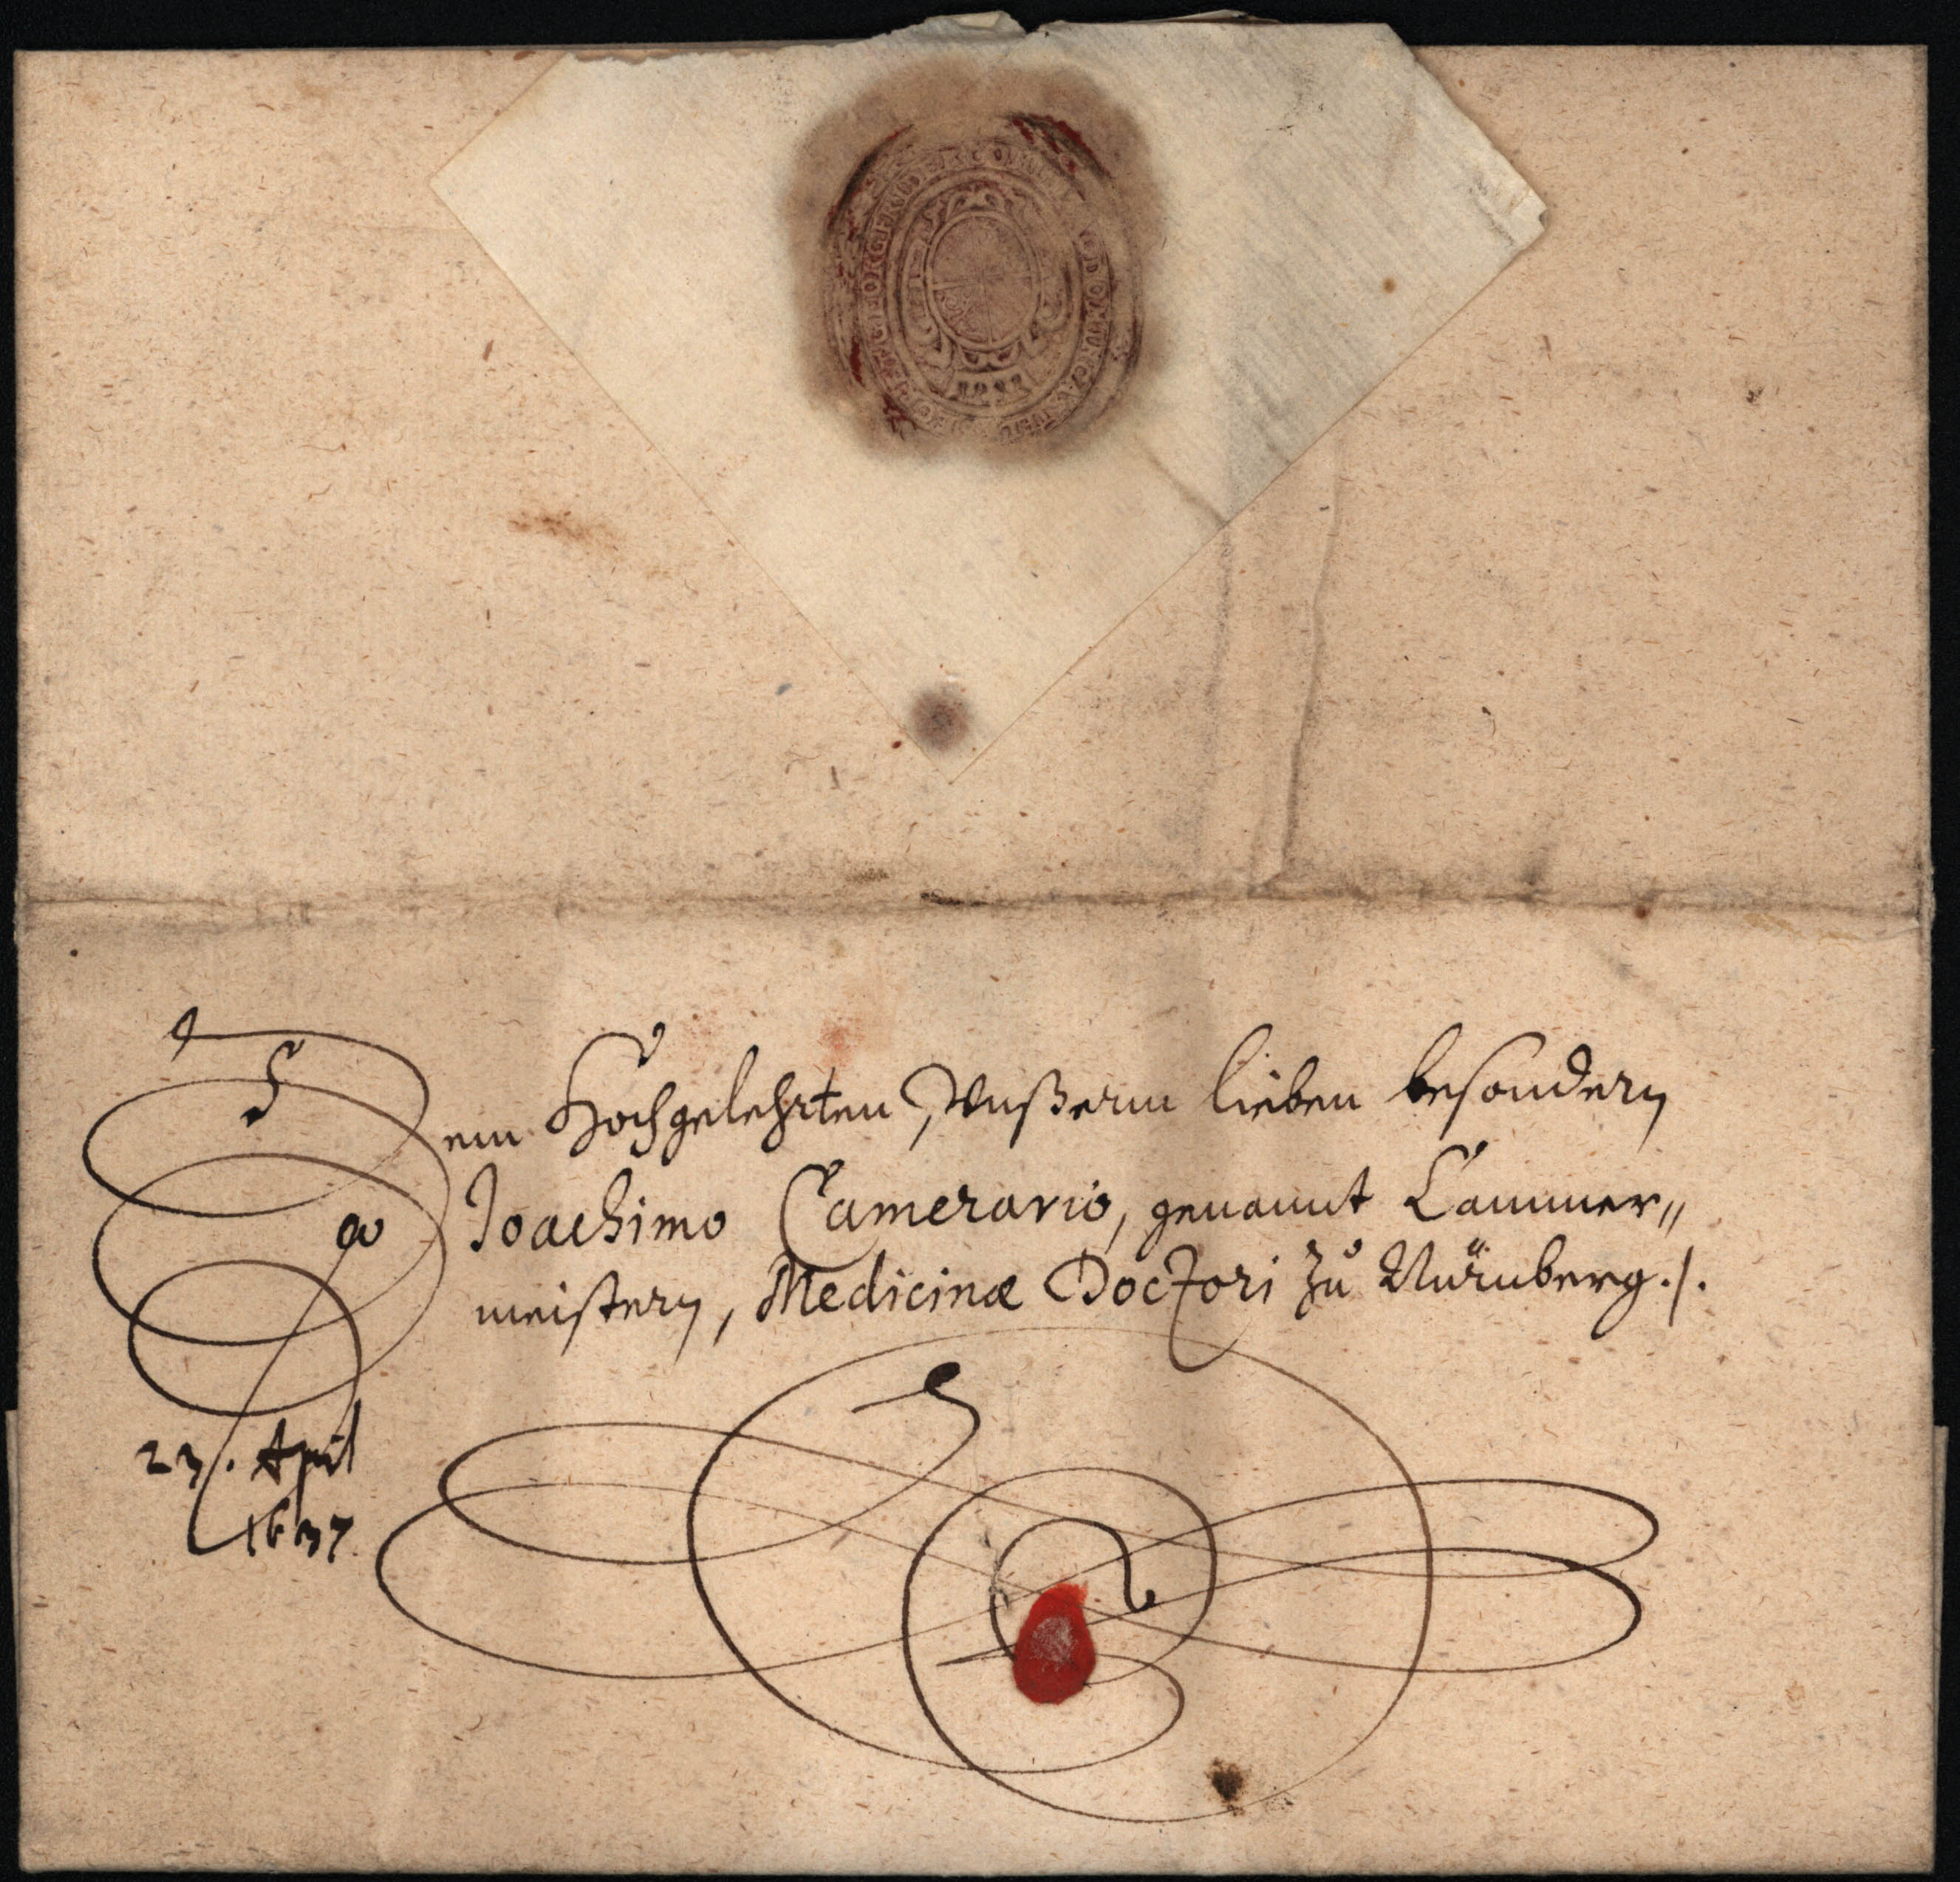 Dem Hochgelehrten, Unßerm lieben besondern
Joachimo Camerario, genannt Cammer„
meistern, Medicinæ Doctori zu Nürnberg./.
23. April
1637